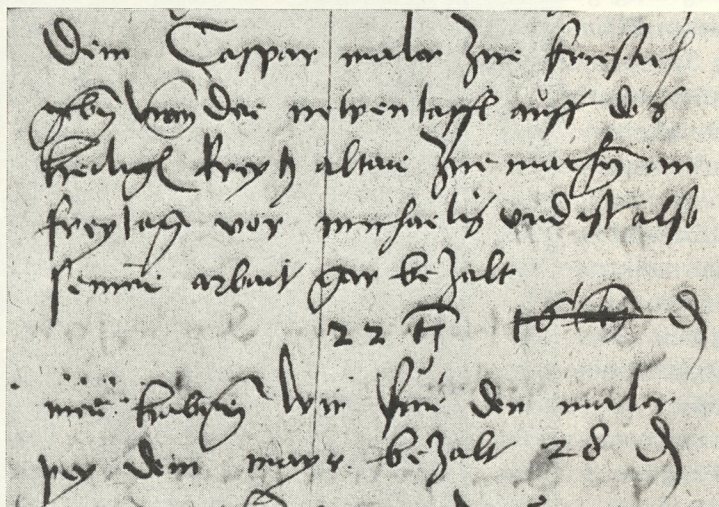 Dem Caspar maler zue friesach
geben von der newen taffl auff des
heiligen kreytz altar zue machen an
freytag vor michaelis und ist also
seiner arbait gar bezalt
22 16 d
mer haben wir fur den maler
pey dem mayr bezalt 28 d